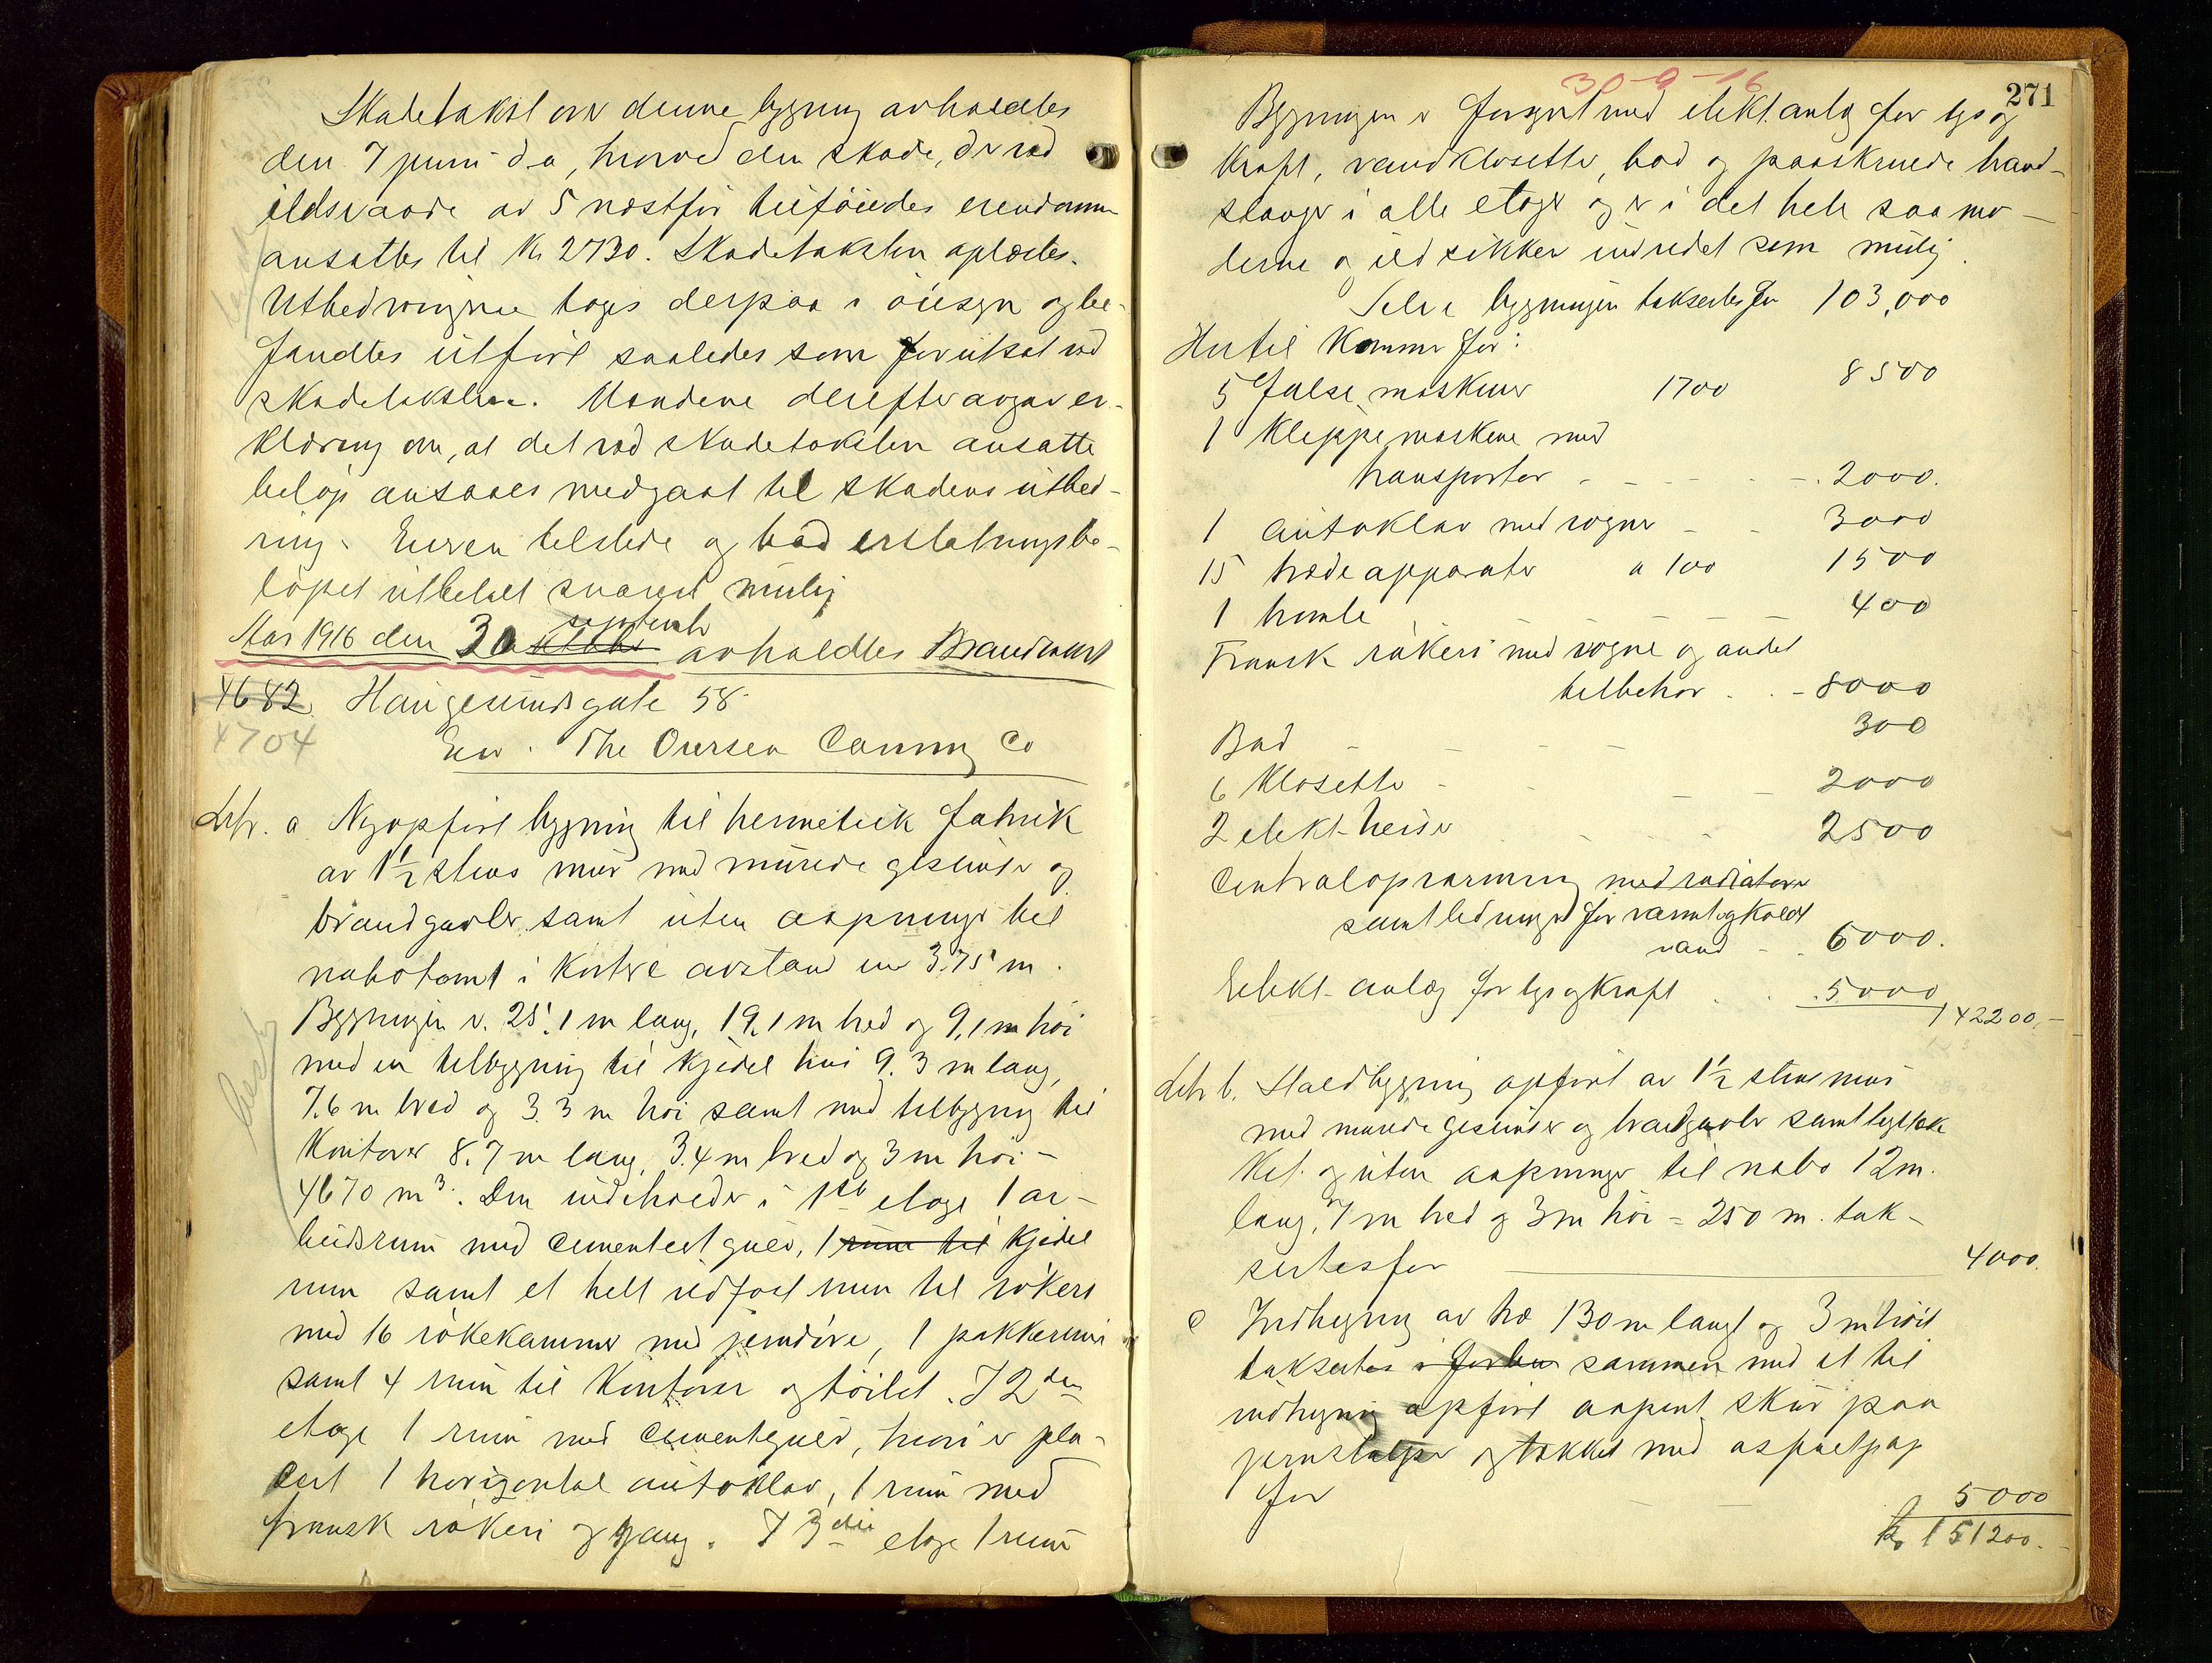 Skadetakst over denne bygning avholdtes
den 7 juni d.a, hvorved den skade, der ved
ildsvaade av 5 næstfør tilføiedes eiendommen
ansattes til Kr 2730. Skadetaksten oplæstes.
Utbedringerne toges derpaa i øiesyn og be-
fandtes utført saaledes som forutsat ved
skadetaksten. Mændene derefter avgav er-
klæring om, at det ved skadetaksten ansatte
beløp ansaaes medgaat til skadens utbed-
ring. Eieren tilstede og bad erstatningsbe-
løpet utbetalt snarest mulig
september
Aar 1916 den 30 oktober avholdtes Brandtakst
4682. Haugesundsgate 58
4704
Eier. The Oversea Canning Co
Litr. a Nyopført bygning til hermetik fabrik
av 1½ stens mur med murede gesimser og
brandgavler samt uten aapninger til
nabotomt i kortere avstand en 3.75 m.
Bygningen er 25.1 m lang, 19.1 m bred og 9.1 m høi
med en tilbygning til kjedel hus 9.3 m lang,
7.6 m bred og 3.3 m høi samt med tilbygning til
Kontorer 8.7 m lang, 3.4 m bred og 3 m høi -
4670 m³. Den indeholder i 1ste etage 1 ar-
beidsrum med cementert gulv, 1 rum til kjedel
rum samt et helt ildfast rum til røkeri
med 16 røkekammer med jerndøre, 1 pakkerum
samt 4 rum til Kontorer og toilet. I 2den
etage 1 rum med cementgulv, hvori er pla-
cert 1 horizontal autoklav, 1 rum med
fransk røkeri og gang. I 3die etage 1 rum
30-9-16
271
Bygningen er forsynt med elekt. anlæg for lys og
kraft, vandklosetter, bad og paaskruede vand-
slanger i alle etager og er i det hele saa mo-
derne og ildsikker indredet som mulig.
Selve bygningen taksertes for 103,000
Hertil kommer for:
5 false maskiner 1700 8500
1 Klippe maskine med
transportør - - - - - 2000.
1 autoklav med vogner - - 3000
15 træde apparater a 100 1500
1 tromle - - - 400
Fransk røkeri med vogne og andet
tilbehør . . - 8000
Bad - - - - - 300
6 Klosetter - - - - 2000
2 elekt. heiser - - - 2500
Centralopvarming med radiatorer
samt ledninger for varmt og koldt
vand - . 6000.
Elekt. anlæg for lys og kraft . . 5000
142200.-
Litr b. Staldbygning opført av 1½ stens mur
med murede gesimser og brandgavler samt teglstek
ket. og uten aapninger til nabo 12 m.
lang, 7 m bred og 3 m høi = 250 m. tak-
sertes for 4000.
c Indhegning av træ 130 m langt og 3 m høit
taksertes i forbin sammen med et til
indhegning opført aapent skur paa
jernstolper og tækket med asfaltpap
for - - 5000
Kr 151200.-